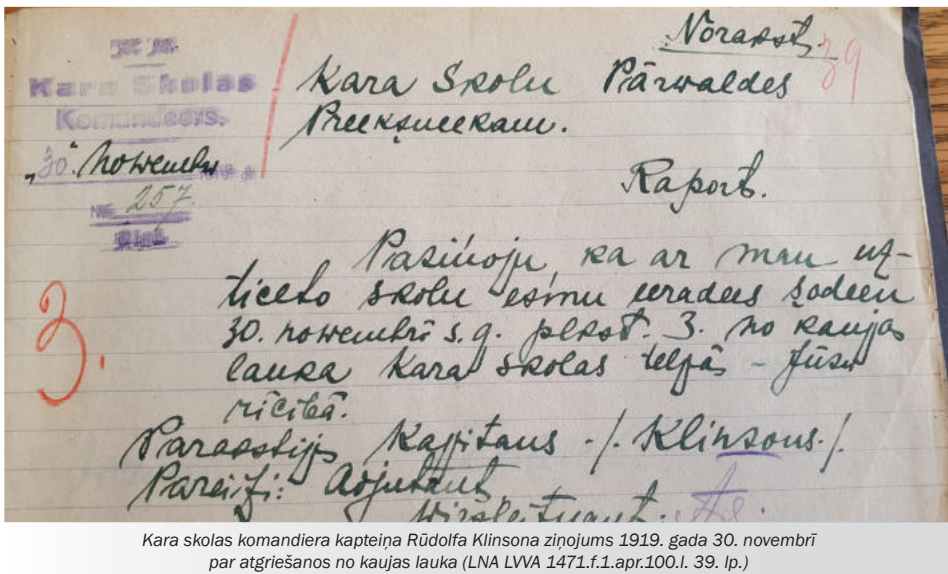 Norakst.
39
Kara Skolas
Komandeers.
"30." Nowembrī
№ 257.
Kara Skolu Pārwaldes
Preekšneekam.
Raport.
3.
Paziņoju, ka ar man uz-
ticeto skolu esmu eeradees šodeen
30. nowembrī s.g. plkst. 3. no kaujas
lauka Kara skolas telpās – Jūsu
rīcibā.
Parakstijis Kapitans ./. Klinsons ./.
Pareizi: Adjutants,
Wirsleitnants.
Kara skolas komandiera kapteiņa Rūdolfa Klinsona ziņojums 1919. gada 30. novembrī
par atgriešanos no kaujas lauka (LNA LVVA 1471.f.1.apr.100.l. 39. lp.)